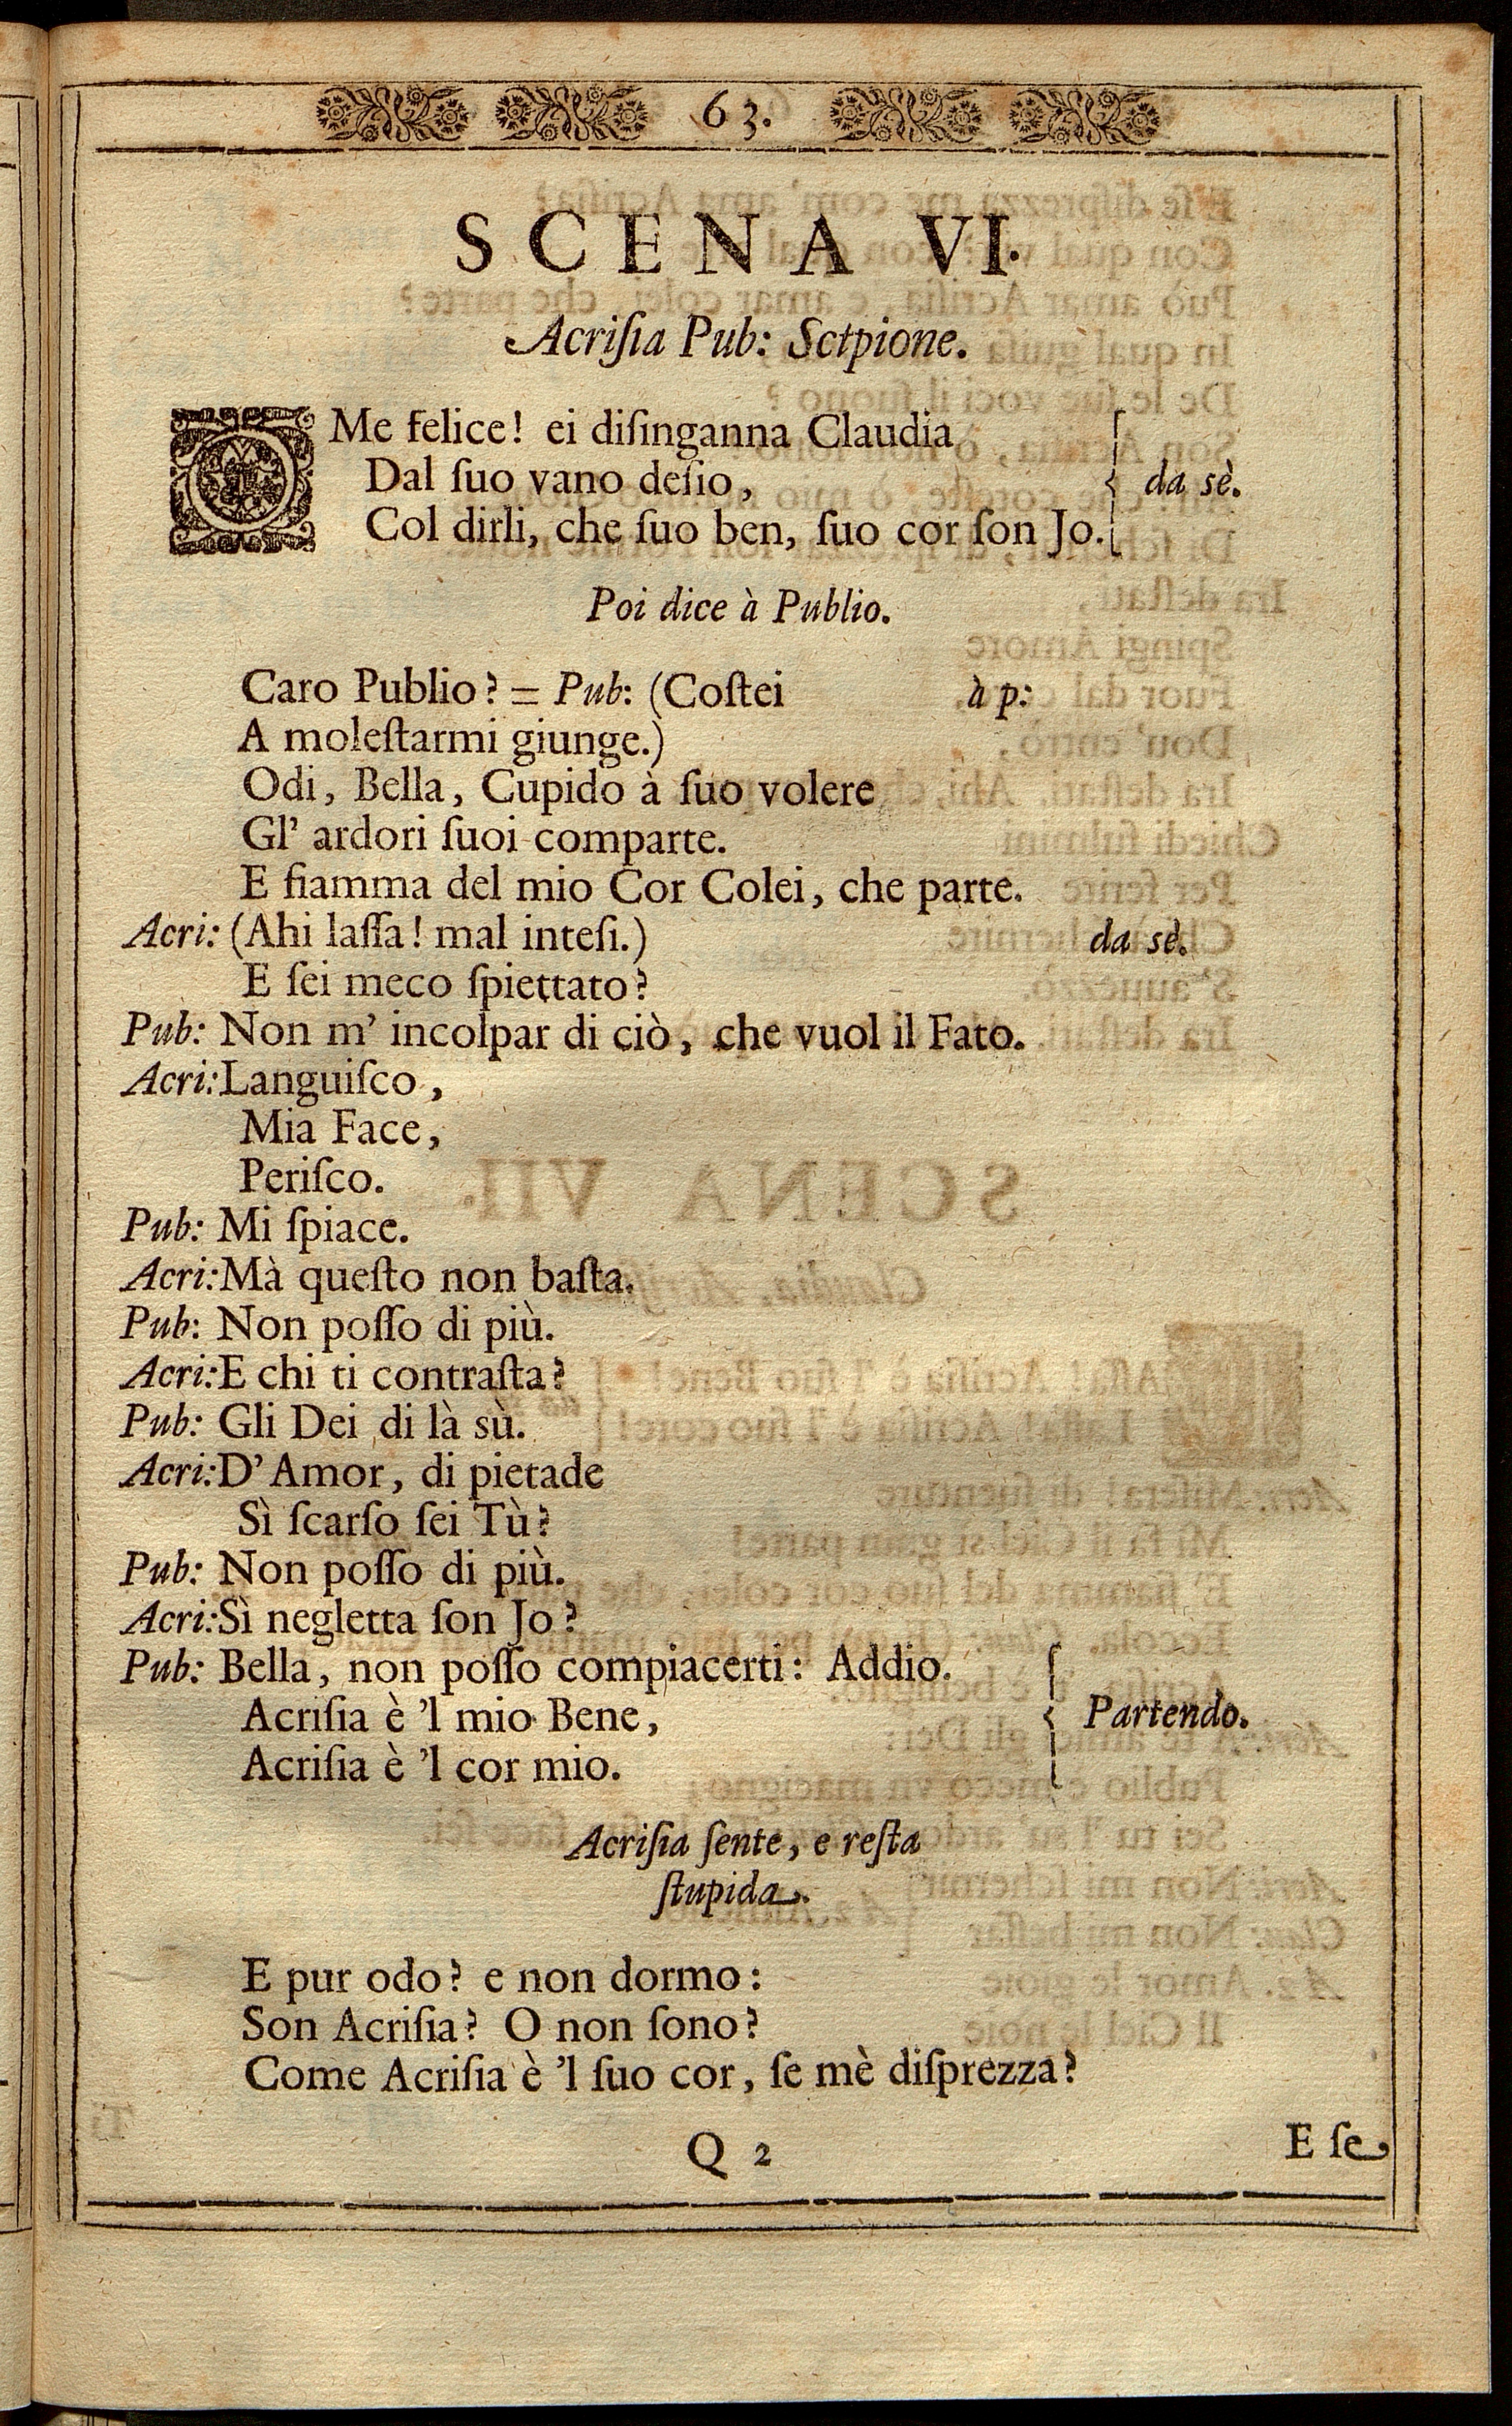 63.
SCENA VI.
Acriſia Pub: Sctpione.
O Me felice! ei diſinganna Claudia
Dal ſuo vano deſio, da sè.
Col dirli, che ſuo ben, ſuo cor ſon Jo.
Poi dice à Publio.
Caro Publio? = Pub: (Coſtei à p:
A moleſtarmi giunge.)
Odi, Bella, Cupido à ſuo volere
Gl' ardori ſuoi comparte.
E fiamma del mio Cor Colei, che parte.
Acri: (Ahi laſſa! mal inteſi.) da sè.
E ſei meco ſpiettato?
Pub: Non m' incolpar di ciò, che vuol il Fato.
Acri: Languiſco,
Mia Face,
Periſco.
Pub: Mi ſpiace.
Acri: Mà queſto non baſta.
Pub: Non poſſo di più.
Acri: E chi ti contraſta?
Pub: Gli Dei di là sù.
Acri: D' Amor, di pietade
Sì ſcarſo ſei Tù?
Pub: Non poſſo di più.
Acri: Sì negletta ſon Jo?
Pub: Bella, non poſſo compiacerti: Addio.
Acriſia è 'l mio Bene, Partendo.
Acriſia è 'l cor mio.
Acriſia ſente, e reſta
ſtupida.
E pur odo? e non dormo:
Son Acriſia? O non ſono?
Come Acriſia è 'l ſuo cor, ſe mè diſprezza?
Q 2 E ſe